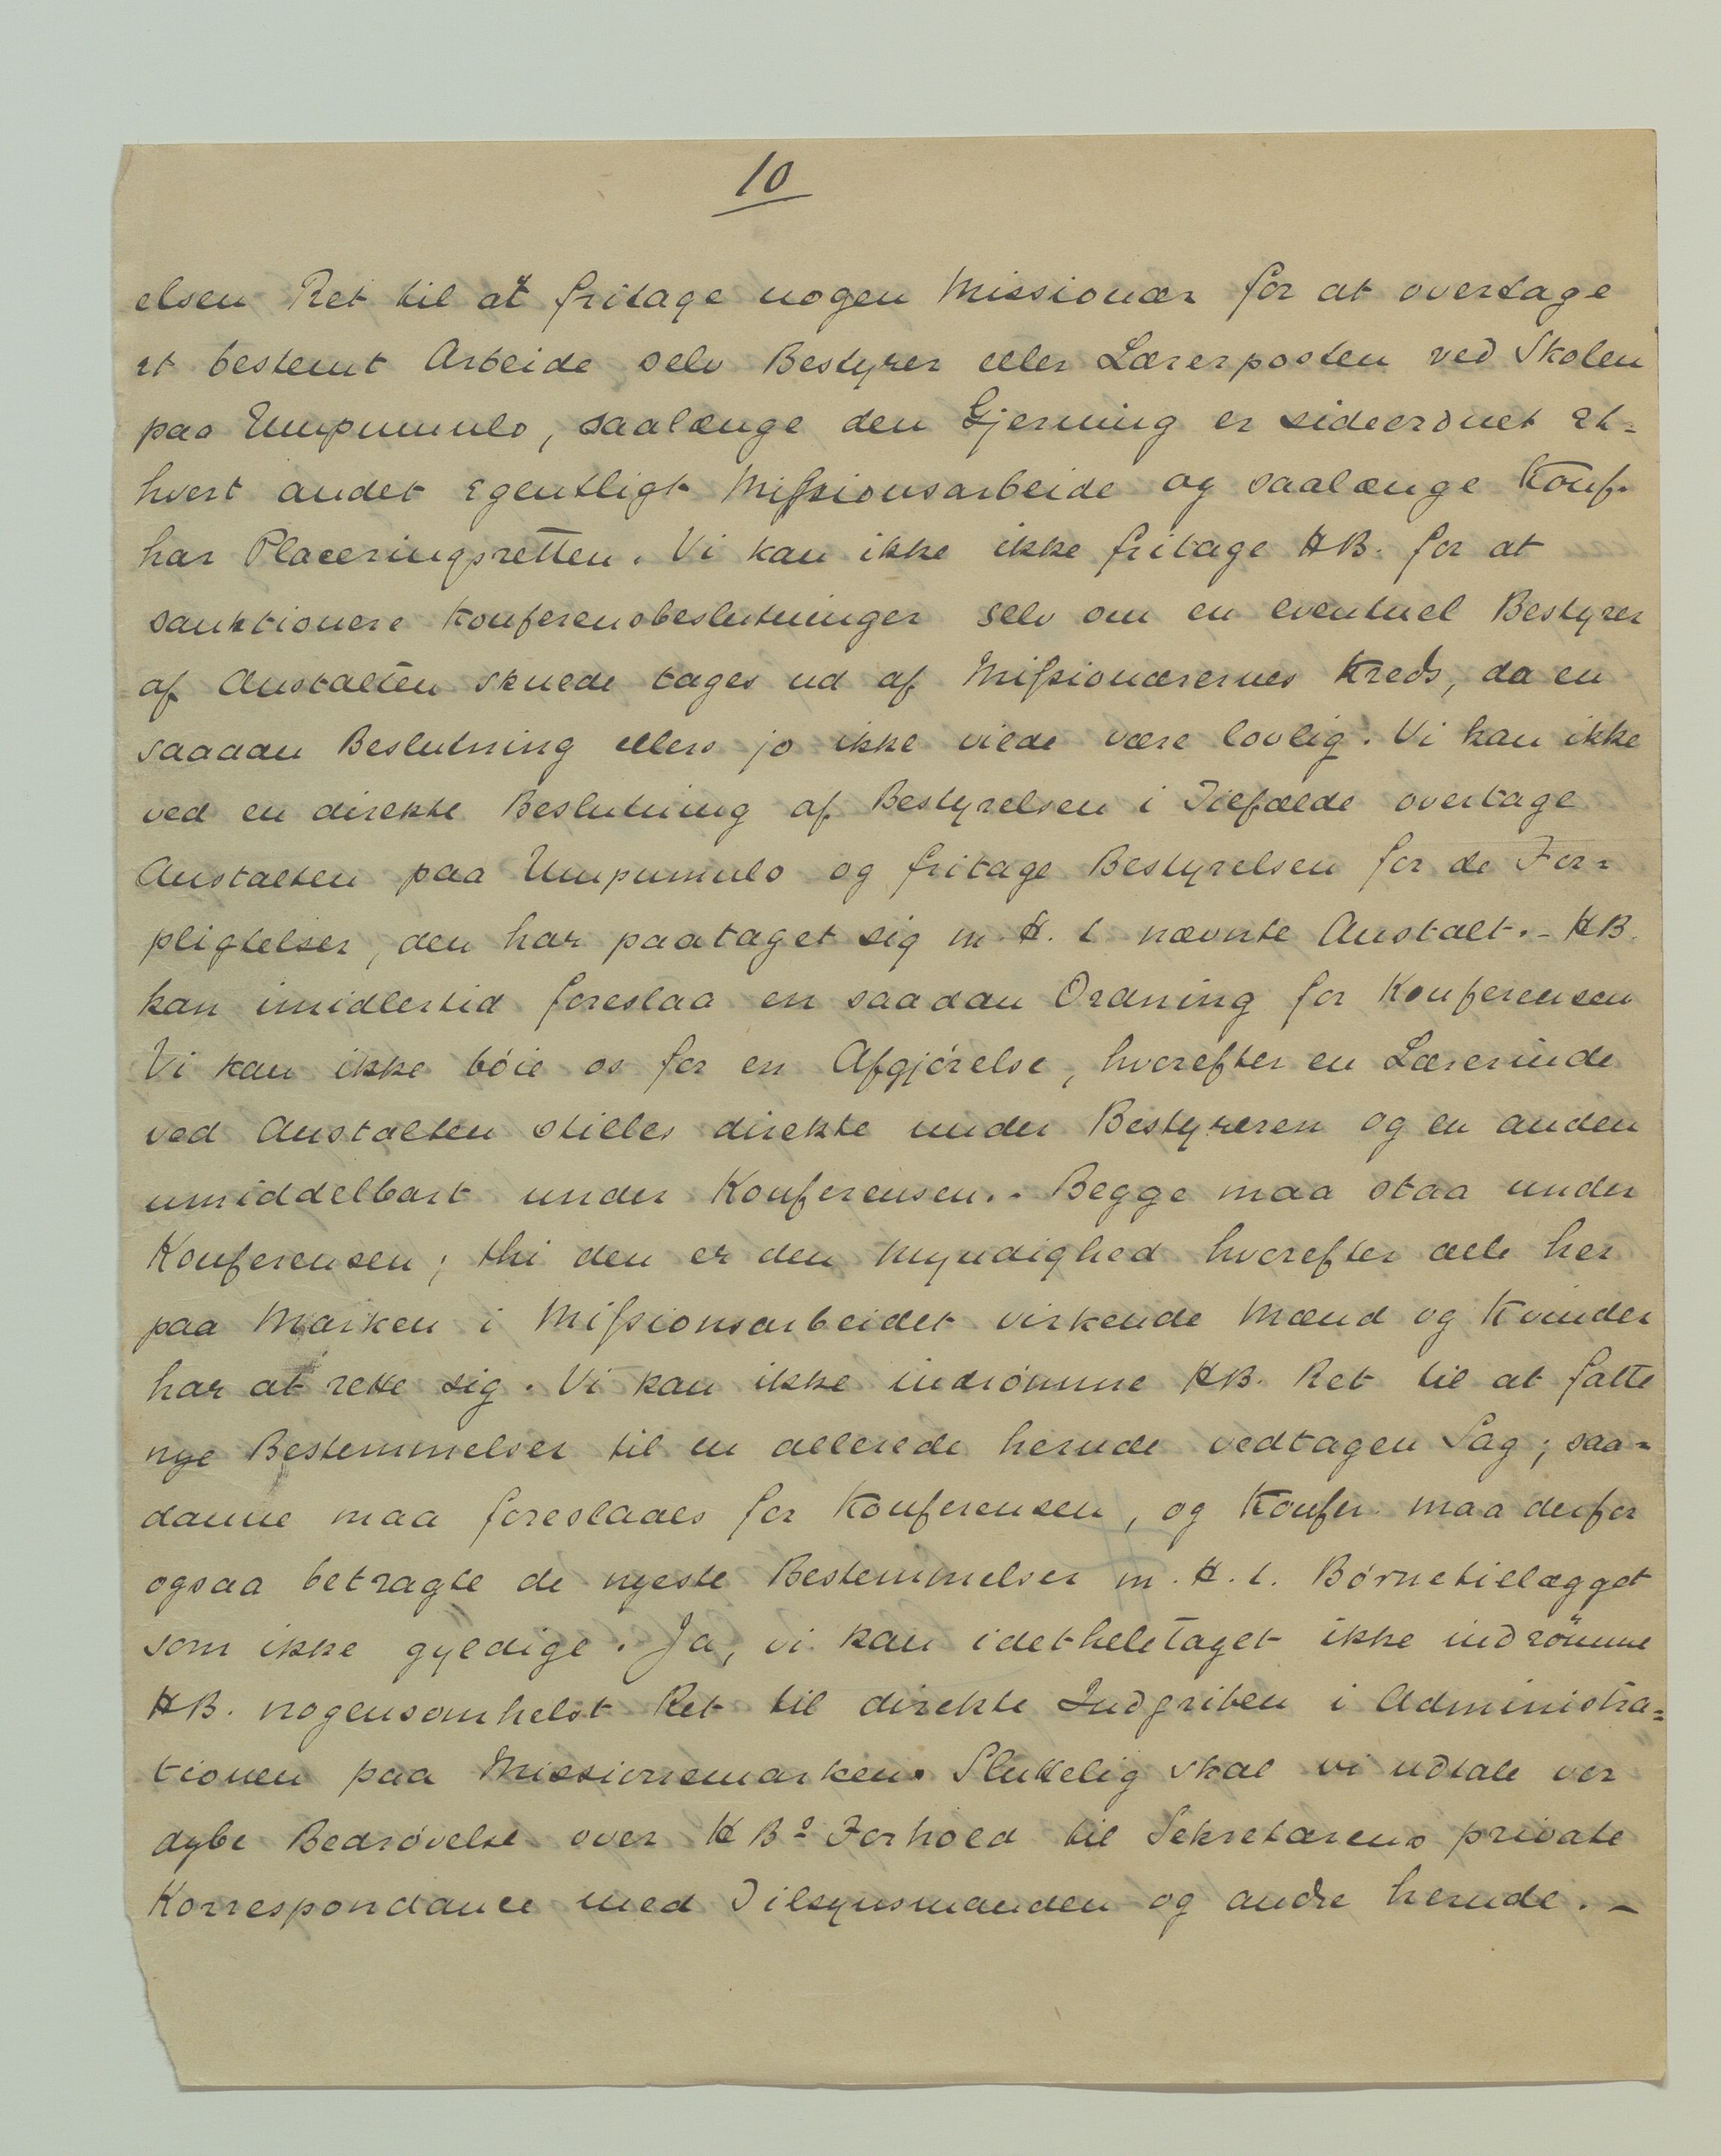 10
elsen Ret til at fritage nogen Missionær for at overtage
et bestemt Arbeide, selv Bestyrer eller Lærerposten ved Skolen
paa Umpumulo, saalænge den Gjerning er sideordnet et-
hvert andet egentligt Missionsarbeide og saalænge Konf.
har Placeringsretten. Vi kan ikke ikke fritage HB. for at
sanktionere Konferensbeslutninger selv om en eventuel Bestyrer
af Anstalten skulde tages ud af Missionærernes Kreds, da en
saadan Beslutning ellers jo ikke vilde være lovlig. Vi kan ikke
ved en direkte Beslutning af Bestyrelsen i Tilfælde overtage
Anstalten paa Umpumulo og fritage Bestyrelsen for de For=
pligtelser, den har paataget sig m. H. t nævnte Anstalt. - HB.
kan imidlertid foreslaa en saadan Ordning for Konferensen
Vi kan ikke bóie os for en Afgjórelse, hvorefter en Lærerinde
ved Anstalten stilles direkte under Bestyreren og en anden
umiddelbart under Konferensen. - Begge maa staa under
Konferensen; thi den er den Myndighed hvorefter alle her
paa Marken i Missionsarbeidet virkende Mænd og Kvinder
har at rette sig. Vi kan ikke indrómme HB. Ret til at fatte
nye Bestemmelser til en allerede herude vedtagen Sag; saa=
danne maa foreslaaes for Konferensen, og Konfer. maa derfor
ogsaa betragte de nyeste Bestemmelser m. H. t. Børnetillægget
som ikke gyldige. Ja, vi kan idetheletaget ikke indrömme
HB. nogensomhelst Ret til direkte Indgriben i Administra=
tionen paa Missionsmarken. Sluttelig skal vi udtale vor
dybe Bedrøvelse over HBs Forhold til Sekretærens private
Korrespondance med Tilsynsmanden og andre herude. -